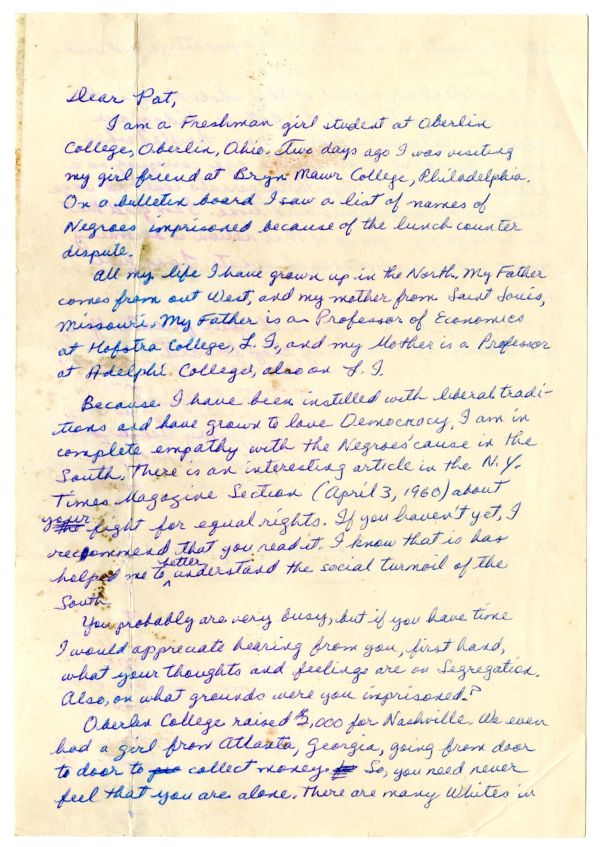 Dear Pat,
I am a Freshman girl student at Oberlin
College, Oberlin, Ohio. Two days ago I was visiting
my girl friend at Bryn Mawr College, Philadelphia.
On a bulletin board I saw a list of names of
Negroes imprisoned because of the lunch counter
dispute.
All my life I have grown up in the North. My Father
comes from out West, and my mother from Saint Louis,
Missouri. My Father is a Professor of Economics
at Hofstra College, L. I., and my Mother is a Professor
at Adelphi College, also on L. I.
Because I have been instilled with liberal tradi-
tions and have grown to love Democracy, I am in
complete empathy with the Negroes' cause in the
South. There is an interesting article in the N.Y.
Times Magazine Section (April 3, 1960) about
your fight for equal rights. If you haven't yet, I
recommend that you read it. I know that is has
helped me to better understand the social turmoil of the
South.
You probably are very busy, but if you have time
I would appreciate hearing from you, first hand,
what your thoughts and feelings are on Segregation.
Also, on what grounds were you imprisoned?
Oberlin College raised $2,000 for Nashville. We even
had a girl from Atlanta, Georgia, going from door
to door to collect money. So, you need never
feel that you are alone. There are many Whites in